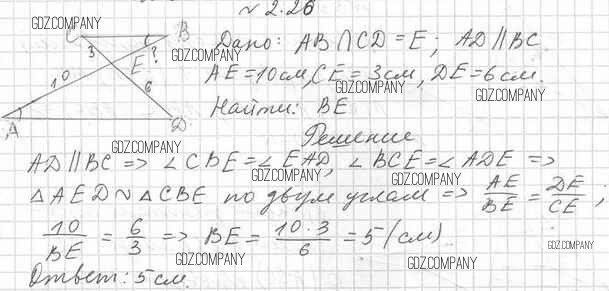 № 2.26
GDZ.COMPANY
C B
GDZ.COMPANY
Дано: AB ∩ CD = E; AD ∥ BC
3 E ?
10 6
AE = 10 см, CE = 3 см, DE = 6 см.
GDZ.COMPANY
Найти: BE
A D
GDZ.COMPANY
Решение
GDZ.COMPANY
AD ∥ BC => ∠ CBE = ∠ EAD, ∠ BCE = ∠ ADE =>
GDZ.COMPANY GDZ.COMPANY
△ AED ~ △ CBE по двум углам => AE/BE = DE/CE;
GDZ.COMPANY
10/BE = 6/3 => BE = 10·3/6 = 5 (см)
GDZ.COMPANY GDZ.COMPANY GDZ.COMPANY
Ответ: 5 см.